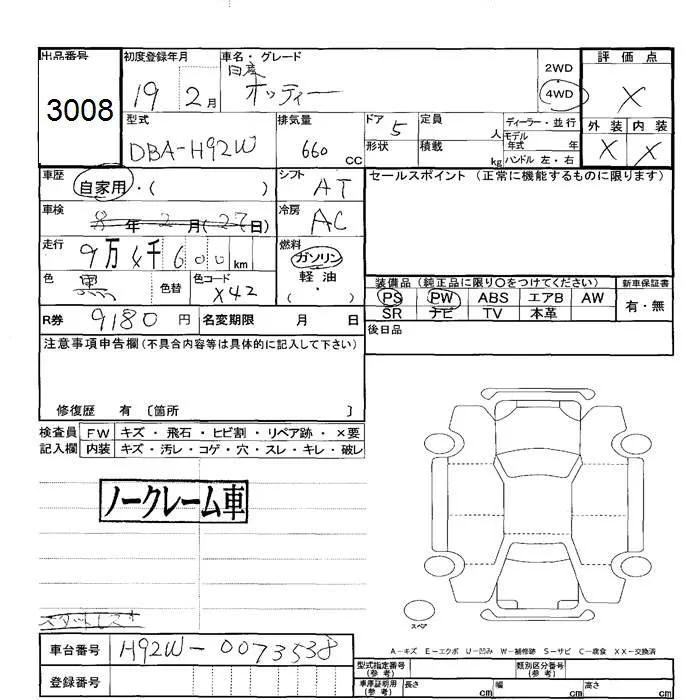 出品番号 初度登録年月 車名・グレード 評価点
3008 19 2月 日産 オッティー 2WD 4WD X
型式 排気量 ドア 5 定員 人 ディーラー・並行 外装 内装
DBA-H92W 660 cc 形状 積載 kg モデル年式 年 ハンドル 左・右 X X
車歴 自家用・( ) シフト AT セールスポイント (正常に機能するものに限ります)
車検 8年2月(27日) 冷房 AC
走行 9万4千600km 燃料 ガソリン・軽油・( )
色 黒 色替 色コード X42 装備品 (純正品に限り○をつけてください) 新車保証書
PS PW ABS エアB AW 有・無
R券 9180円 名変期限 月 日 SR ナビ TV 本革
後日品
注意事項申告欄(不具合内容等は具体的に記入して下さい)
修復歴 有 〔箇所 〕
検査員 FW キズ・飛石・ヒビ割・リペア跡・×要
記入欄 内装 キズ・汚レ・コゲ・穴・スレ・キレ・破レ
ノークレーム車
スタットレス
スペア
車台番号 H92W-0073538 A-キズ E-エクボ U-凹み W-補修跡 S-サビ C-腐食 XX-交換済
型式指定番号(参考) 類別区分番号(参考)
登録番号 車庫証明用(参考) 長さ cm 幅 cm 高さ cm